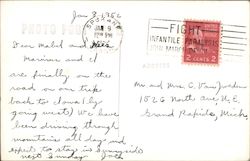 Jan 8, 1956
SPOKANE
JAN 9
FIGHT
INFANTILE PARALYSIS
JOIN MARCH OF DIMES
PHOTO POST
ADDRESS
2 CENTS 2
Dear Mabel and
Marinus and I
are finally on the
road on our trip
back to Iowa (by
going west) We have
been driving through
mountains all day and
expect to stay in Sunnyside
next Sunday
Mr and Mrs C. Van
1526 North Ave N.E.
Grand Rapids, Mich.